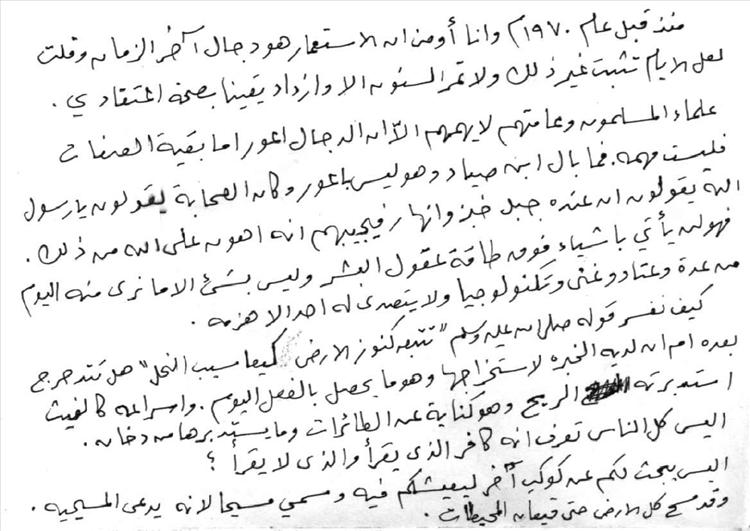 منذ قبل عام ١٩٧٠م وانا أومن ان الاستعمار هو دجال آخر الزمان وقلت
لعل الايام تثبت غير ذلك ولا تمر السنون الا وازداد يقينا بصحة اعتقادي .
علماء المسلمون وعامتهم لا يهمهم الا ان الدجال اعور اما بقية الصفات
فليست مهمه . فما بال ابن صياد وهو ليس باعور وكان الصحابة يقولون يا رسول
الله يقولون ان عنده جبل خبز وانهار فيجيبهم انه اهون على الله من ذلك .
فهو لن يأتي باشياء فوق طاقة عقول البشر وليس بشئ الا ما نرى منه اليوم
من عدة وعتاد وغنى وتكنولوجيا ولا يتصدى له احد الا هزمه .
كيف نفسر قوله صلى الله عليه وسلم " تتبعه كنوز الارض كيعاسيب النحل " هل تتدحرج
بعده ام ان لديه الخبره لاستخراجها وهو ما يحصل بالفعل اليوم . واسراعه كالغيث
استدبرته الريح وهو كناية عن الطائرات وما يستدبرها من دخان .
اليس كل الناس تعرف انه كافر الذي يقرأ والذي لا يقرأ ؟
اليس يبحث لكم عن كوكب آخر ليعيشكم فيه ومسمي مسيحا لانه يدعي المسيحيه .
وقد مسح كل الارض حتى قيعان المحيطات .